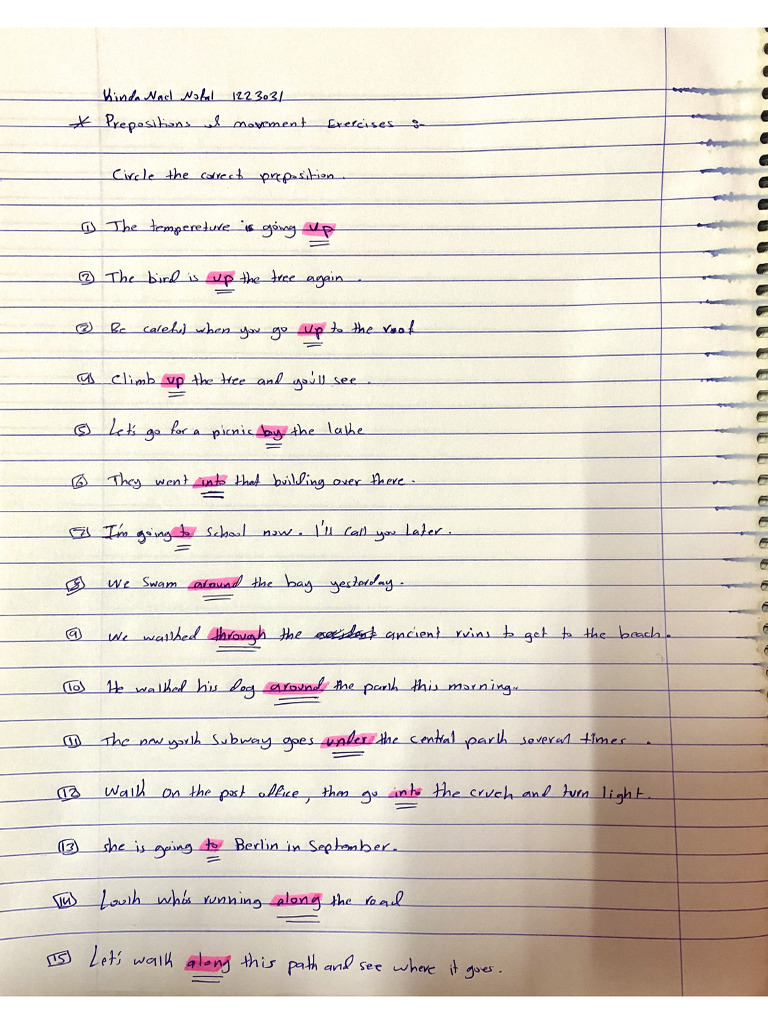 Kinda Nael Nofal 1223031
* Prepositions of movement Exercises :-
Circle the correct preposition.
① The tempereture is going up
② The bird is up the tree again.
③ Be careful when you go up to the roof
④ Climb up the tree and you'll see.
⑤ Let's go for a picnic by the lake
⑥ They went into that building over there.
⑦ I'm going to school now. I'll call you later.
⑧ We swam around the bay yesterday.
⑨ we walked through the ancient ruins to get to the beach.
⑩ He walked his dog around the park this morning.
⑪ The new york subway goes under the central park several times.
⑫ Walk on the post office, then go into the cruch and turn light.
⑬ she is going to Berlin in September.
⑭ Look who's running along the road
⑮ Let's walk along this path and see where it goes.